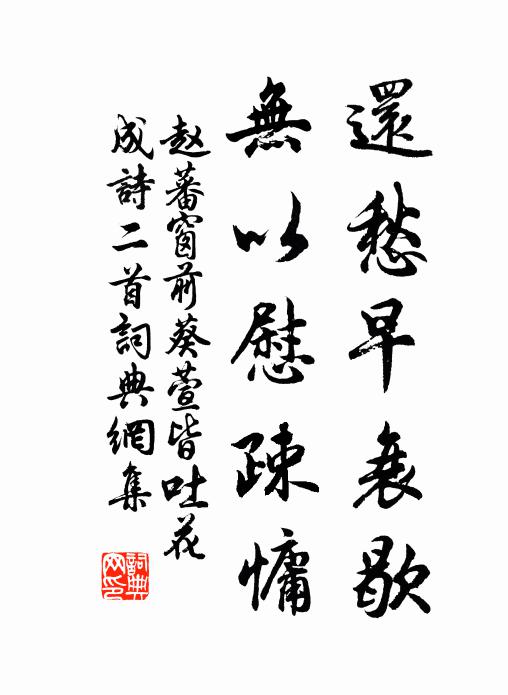 還愁早衰歇
無以慰疎慵
赵蕃窗前葵萱皆吐花
成詩二首詞典網集
詞典网印